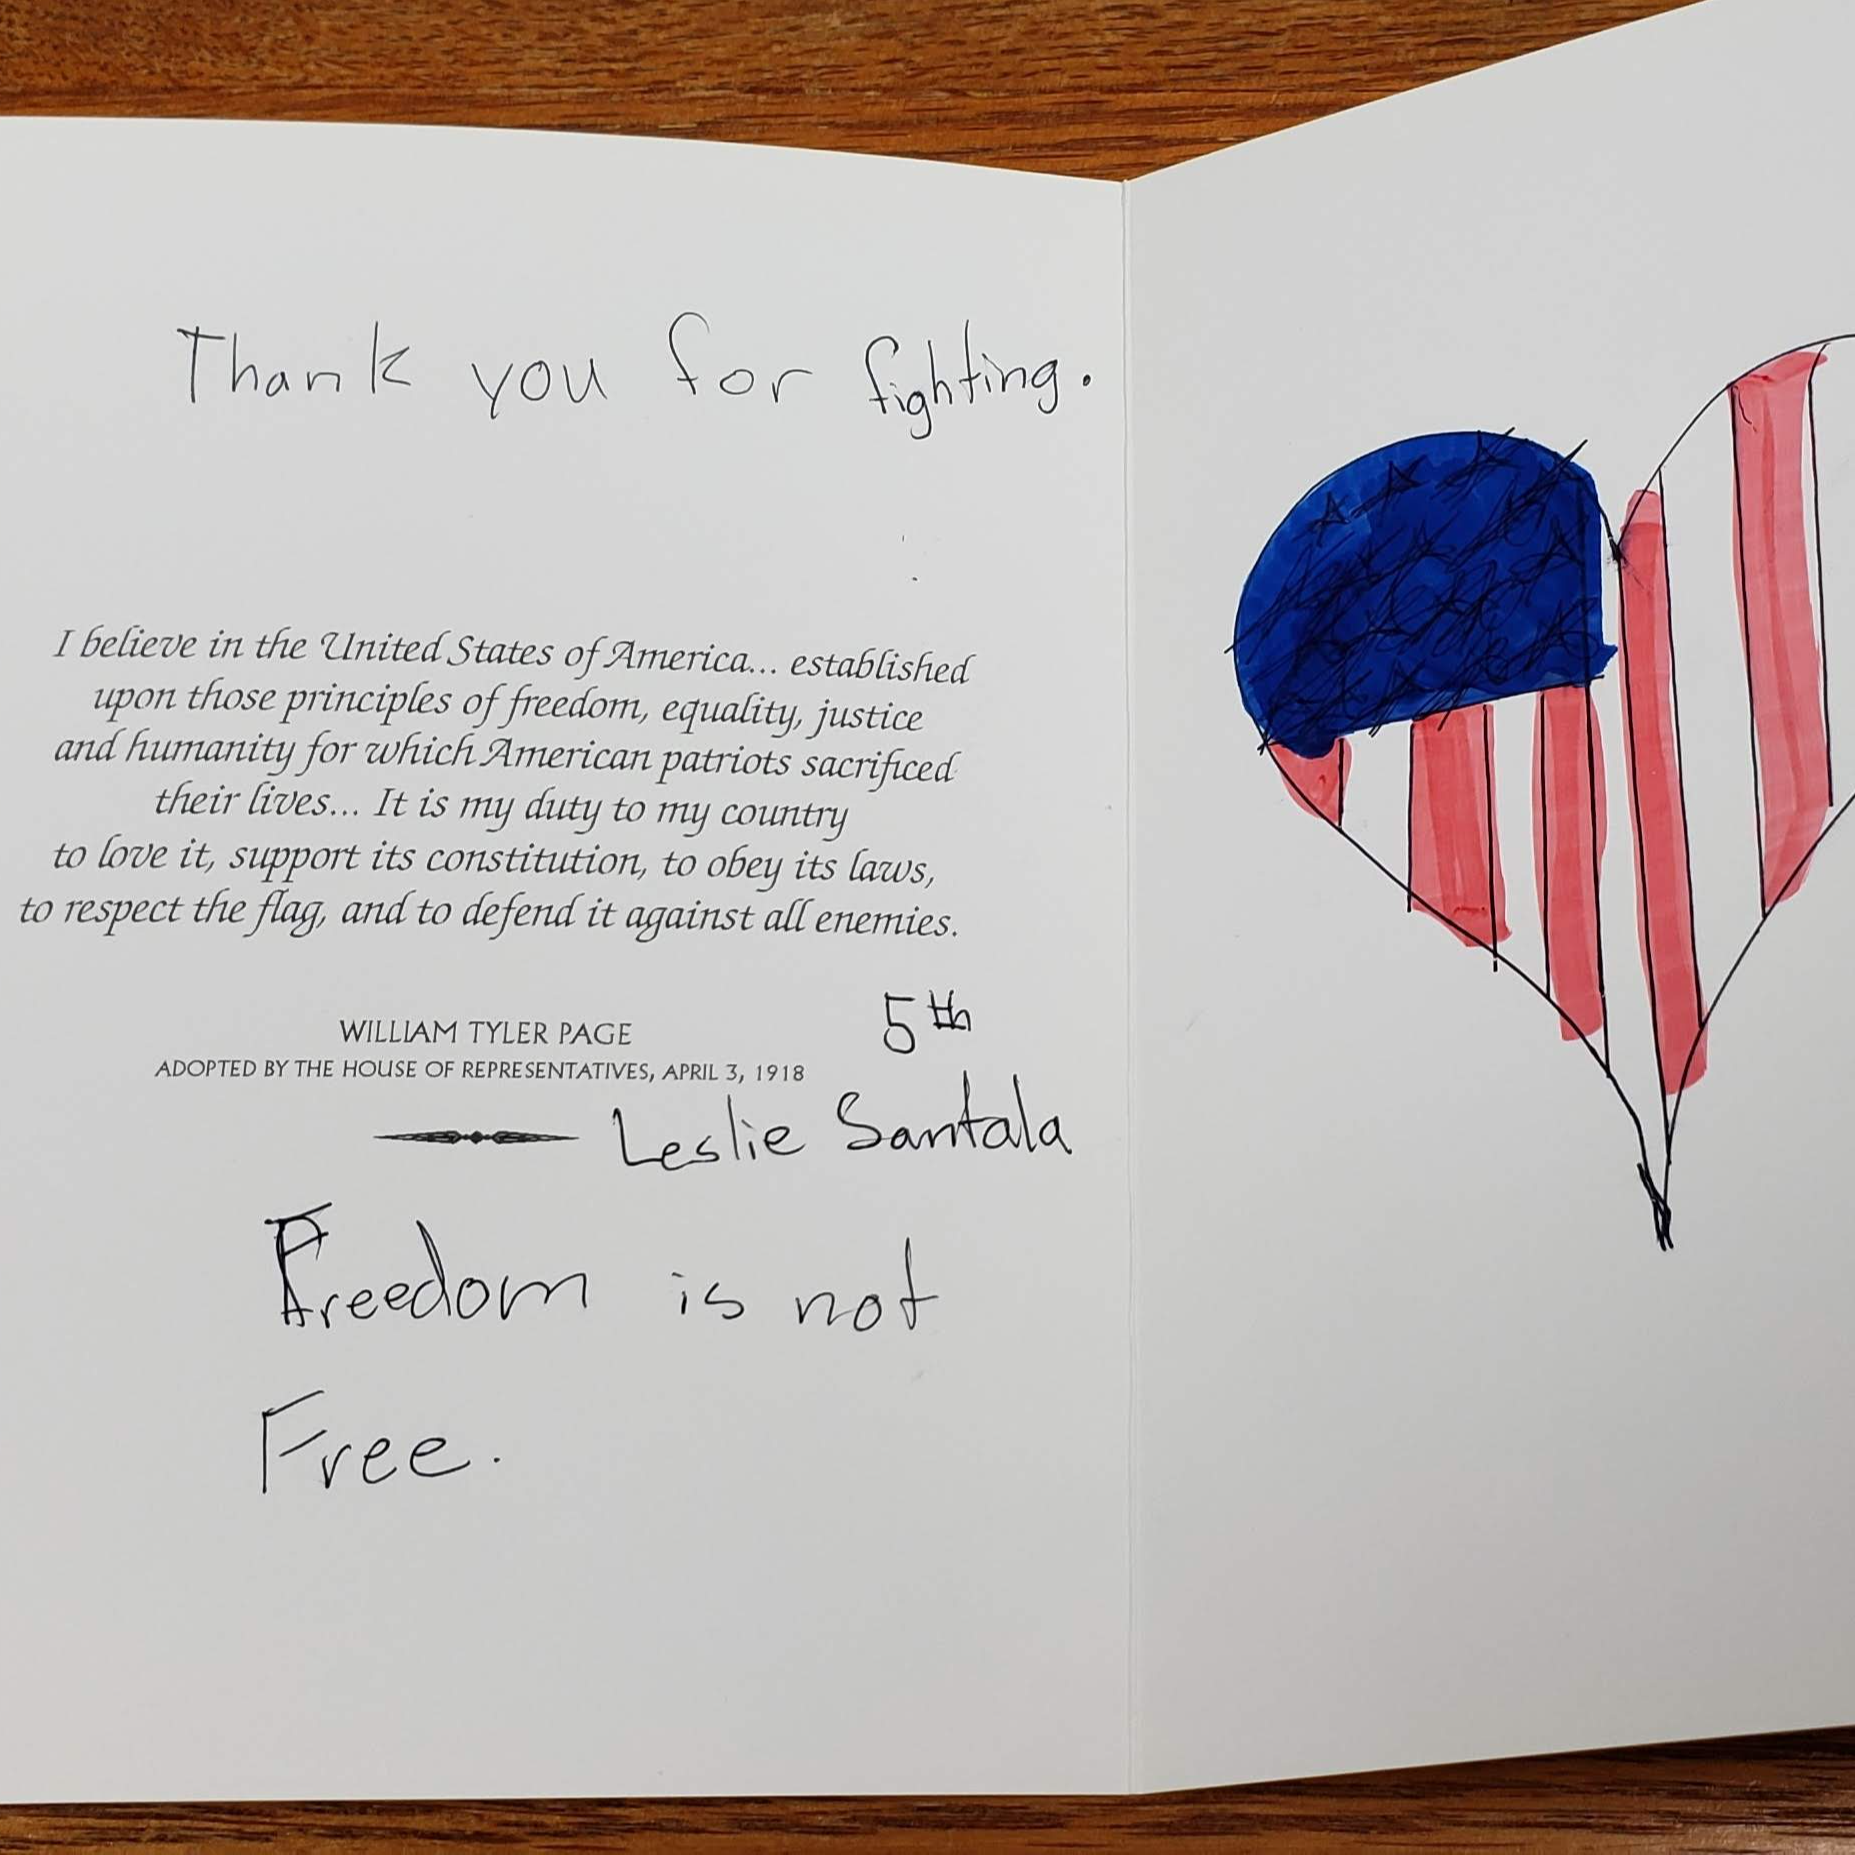 Thank you for fighting.
I believe in the United States of America... established
upon those principles of freedom, equality, justice
and humanity for which American patriots sacrificed
their lives... It is my duty to my country
to love it, support its constitution, to obey its laws,
to respect the flag, and to defend it against all enemies.
WILLIAM TYLER PAGE
ADOPTED BY THE HOUSE OF REPRESENTATIVES, APRIL 3, 1918
5th
Leslie Santala
Freedom is not
Free.